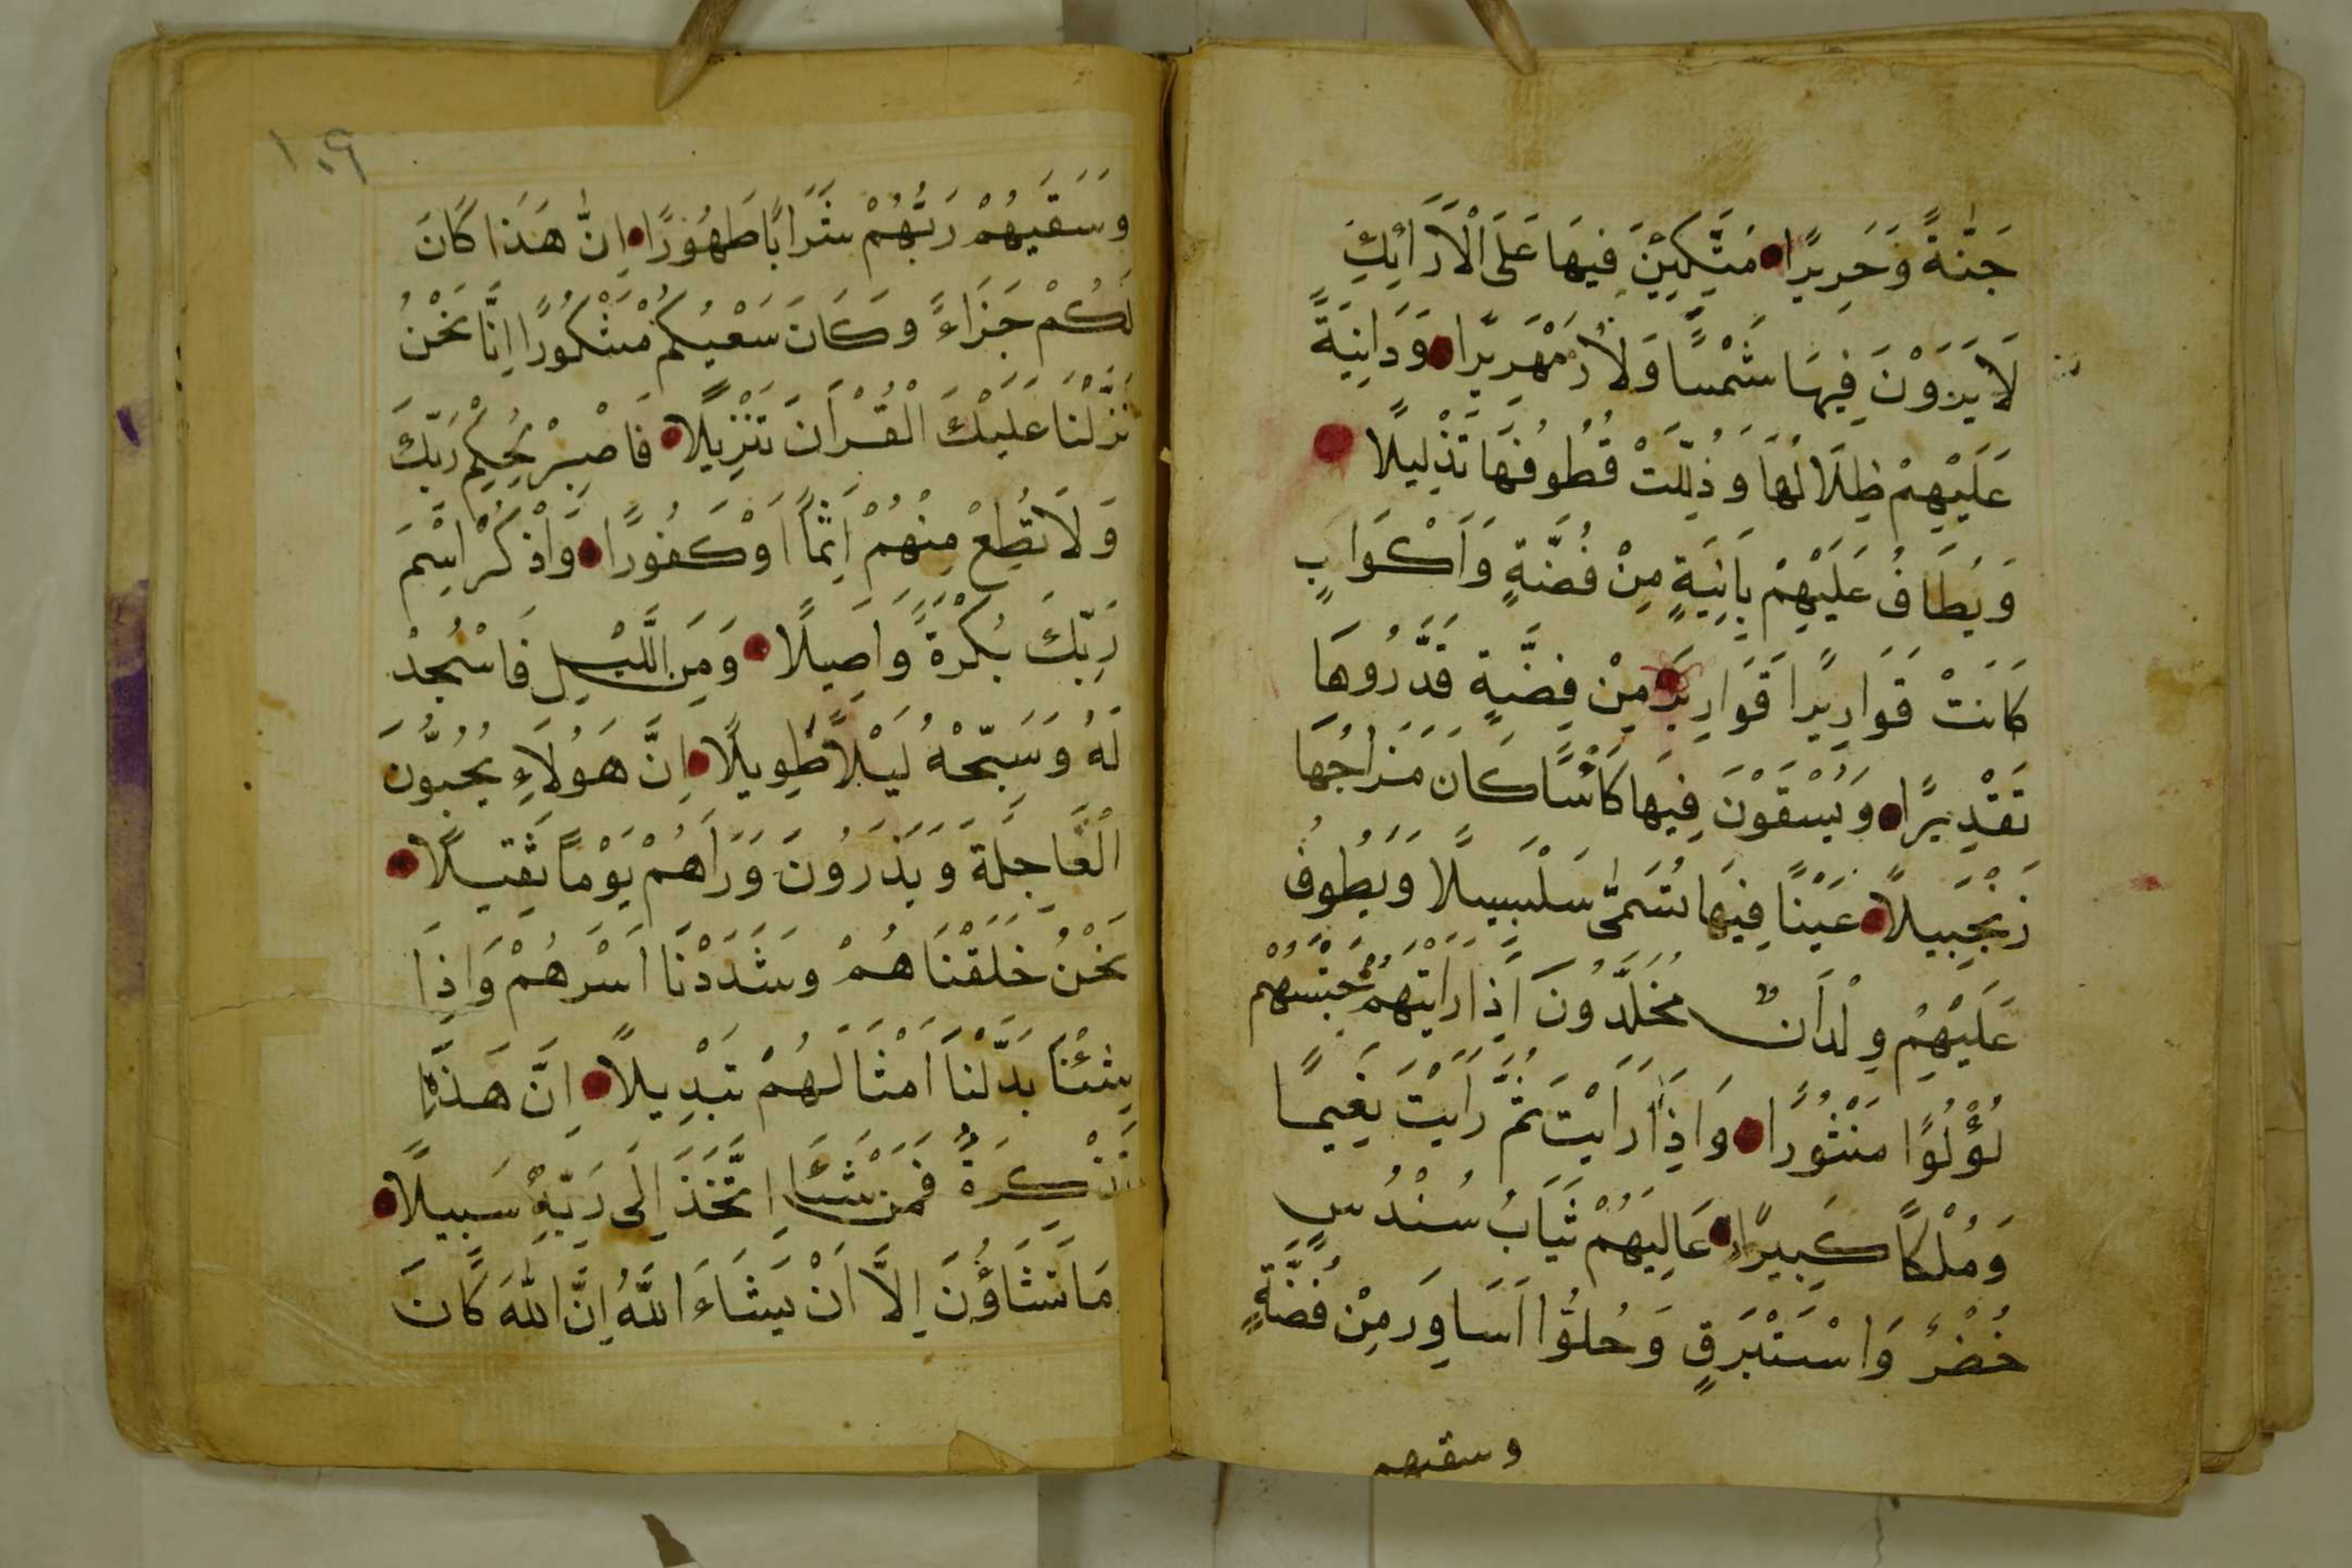 جَنَّةً وَحَرِيرًا مُتَّكِئِينَ فِيهَا عَلَى الْاَرَائِكِ
لَا يَرَوْنَ فِيهَا شَمْسًا وَلَا زَمْهَرِيرًا وَدَانِيَةً
عَلَيْهِمْ ظِلَالُهَا وَذُلِّلَتْ قُطُوفُهَا تَذْلِيلًا
وَيُطَافُ عَلَيْهِمْ بِاٰنِيَةٍ مِنْ فُضَّةٍ وَاَكْوَابٍ
كَانَتْ قَوَارِيرًا قَوَارِيرَ مِنْ فِضَّةٍ قَدَّرُوهَا
تَقْدِيرًا وَيُسْقَوْنَ فِيهَا كَأْسًا كَانَ مَزَاجُهَا
زَنْجَبِيلًا عَيْنًا فِيهَا تُسَمّٰى سَلْسَبِيلًا وَيَطُوفُ
عَلَيْهِمْ وِلْدَانٌ مُخَلَّدُونَ اِذَا رَاَيْتَهُمْ حَسِبْتَهُمْ
لُؤْلُؤًا مَنْثُورًا وَاِذَا رَاَيْتَ ثَمَّ رَاَيْتَ نَعِيمًا
وَمُلْكًا كَبِيرًا عَالِيَهُمْ ثِيَابُ سُنْدُسٍ
خُضْرٌ وَاسْتَبْرَقٍ وَحُلُّوا اَسَاوِرَ مِنْ فُضَّةٍ
وسقيهم
١٠٩
وَسَقَيهُمْ رَبُّهُمْ شَرَابًا طَهُورًا اِنَّ هَذَا كَانَ
لَكُمْ جَزَاءً وَكَانَ سَعْيُكُمْ مَشْكُورًا اِنَّا نَحْنُ
نَزَّلْنَا عَلَيْكَ الْقُرْاَنَ تَنْزِيلًا فَاصْبِرْ لِحُكْمِ رَبِّكَ
وَلَا تُطِعْ مِنْهُمْ اٰثِمًا اَوْ كَفُورًا وَاذْكُرْ اسْمَ
رَبِّكَ بُكْرَةً وَاَصِيلًا وَمِنَ اللَّيْلِ فَاسْجُدْ
لَهُ وَسَبِّحْهُ لَيْلًا طَوِيلًا اِنَّ هَؤُلَاءِ يُحِبُّونَ
الْعَاجِلَةَ وَيَذَرُونَ وَرَاَهُمْ يَوْمًا ثَقِيلًا
نَحْنُ خَلَقْنَاهُمْ وَشَدَدْنَا اَسْرَهُمْ وَاِذَا
شِئْنَا بَدَّلْنَا اَمْثَالَهُمْ تَبْدِيلًا اِنَّ هَذِهِ
تَذْكِرَةٌ فَمَنْ شَاءَ اتَّخَذَ اِلَى رَبِّهِ سَبِيلًا
مَا تَشَاؤُنَ اِلَّا اَنْ يَشَاءَ اللَّهُ اِنَّ اللّٰهَ كَانَ